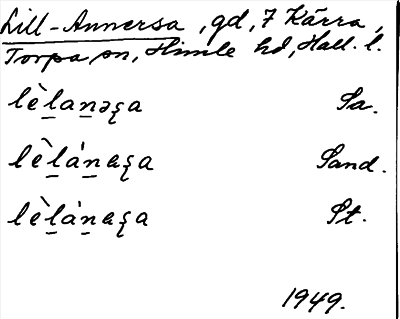 Lill-Annersa, gd, 7 Kärra,
Torpa sn, Himle hd, Hall. l.
lè̱lạṉəʂa Sa.
lèḻáṉaʂa Sand.
lèḻáṉaʂa St.
1949.